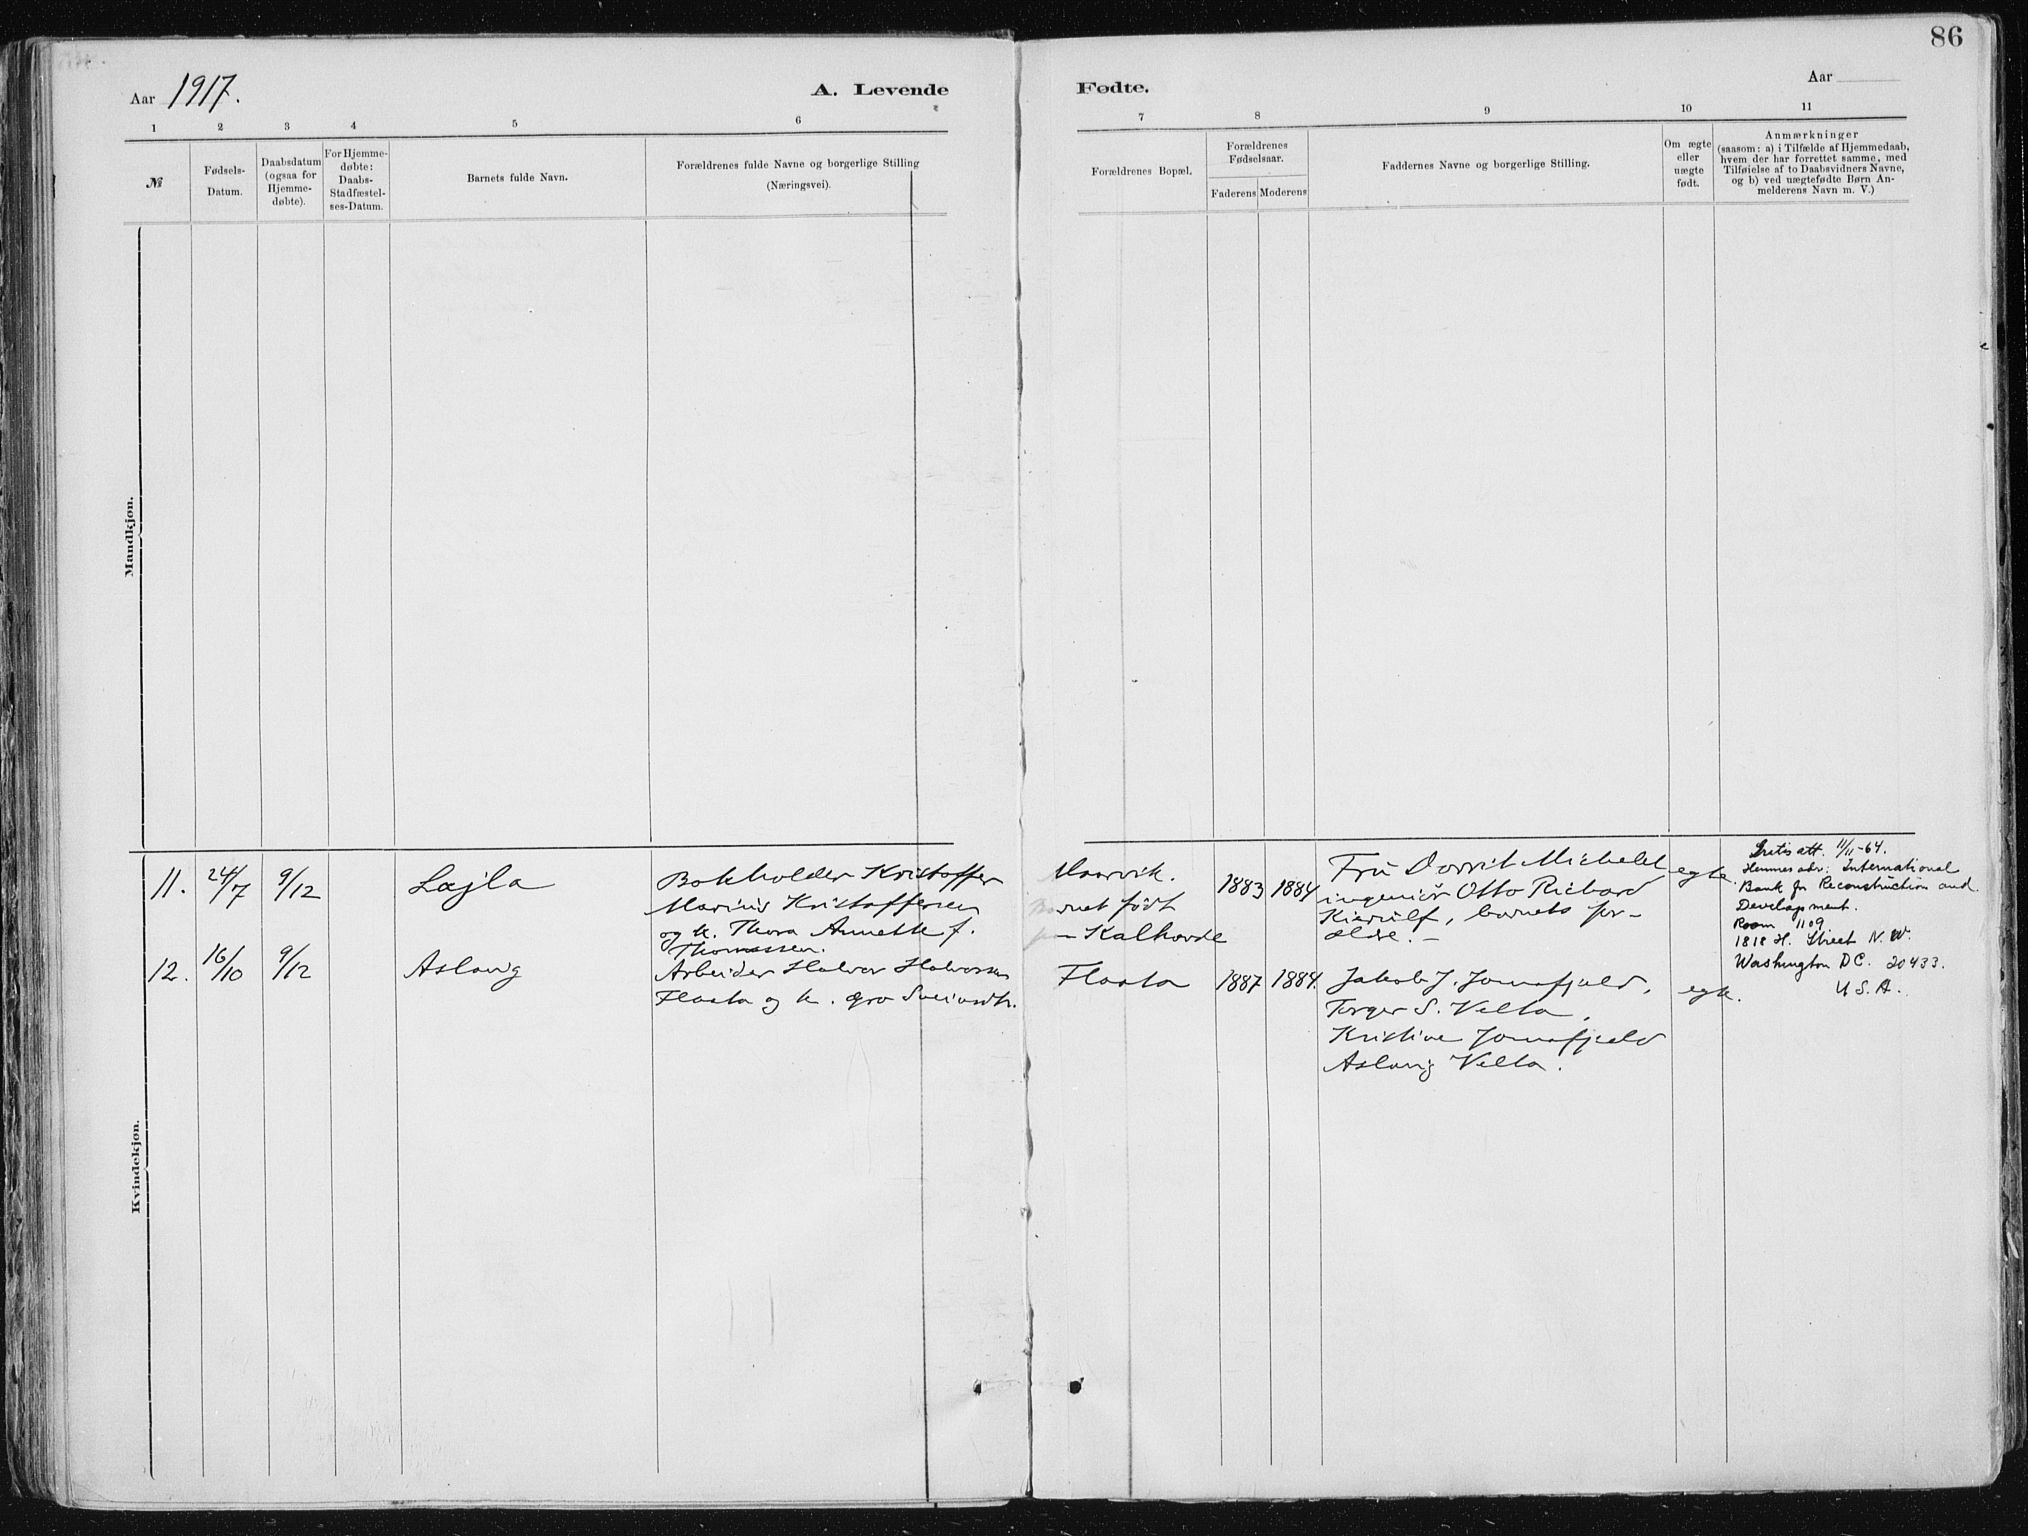 86
Aar 1917.
A. Levende
Fødte.
Aar
1 2 3 4 5 6
7 8 9 10 11
№
Fødsels-
Datum.
Daabsdatum
(ogsaa for
Hjemme-
døbte).
For Hjemme-
døbte:
Daabs-
Stadfæstel-
ses-Datum.
Barnets fulde Navn.
Forældrenes fulde Navne og borgerlige Stilling
(Næringsvei).
Forældrenes Bopæl.
Forældrenes
Fødselsaar.
Faderens Moderens
Faddernes Navne og borgerlige Stilling.
Om ægte
eller
uægte
født.
Anmærkninger
(saasom: a) i Tilfælde af Hjemmedaab,
hvem der har forrettet samme, med
Tilføielse af to Daabsvidners Navne,
og b) ved uægtefødte Børn An-
melderens Navn m. V.)
Mandkjøn.
Kvindekjøn.
11. 24/7 9/12 Lajla
Bokholder Kristoffer
Marius Kristoffersen
og k. Thora Annette f.
Thomassen.
født
Kalhovde
1883 1884
Fru Dorrit Michelet
ingeniør Otto Richard
Kierulf, barnets for-
ældre. –
egte.
Gratis att. 11/11-64.
Hennes adr: International
Bank for Reconstruction and
Development.
Room 1109
1818 H. Street N.W.
Washington D.C. 20433.
U.S.A.
12. 16/10 9/12 Aslaug
Arbeider Halvor Halvorsen
Flaata og k. Gro
Flaata
1887 1884.
Jakob J. Jonsfjeld,
Torger S. Velta,
Kristine Jonsfjeld
Aslaug Velta.
egte.